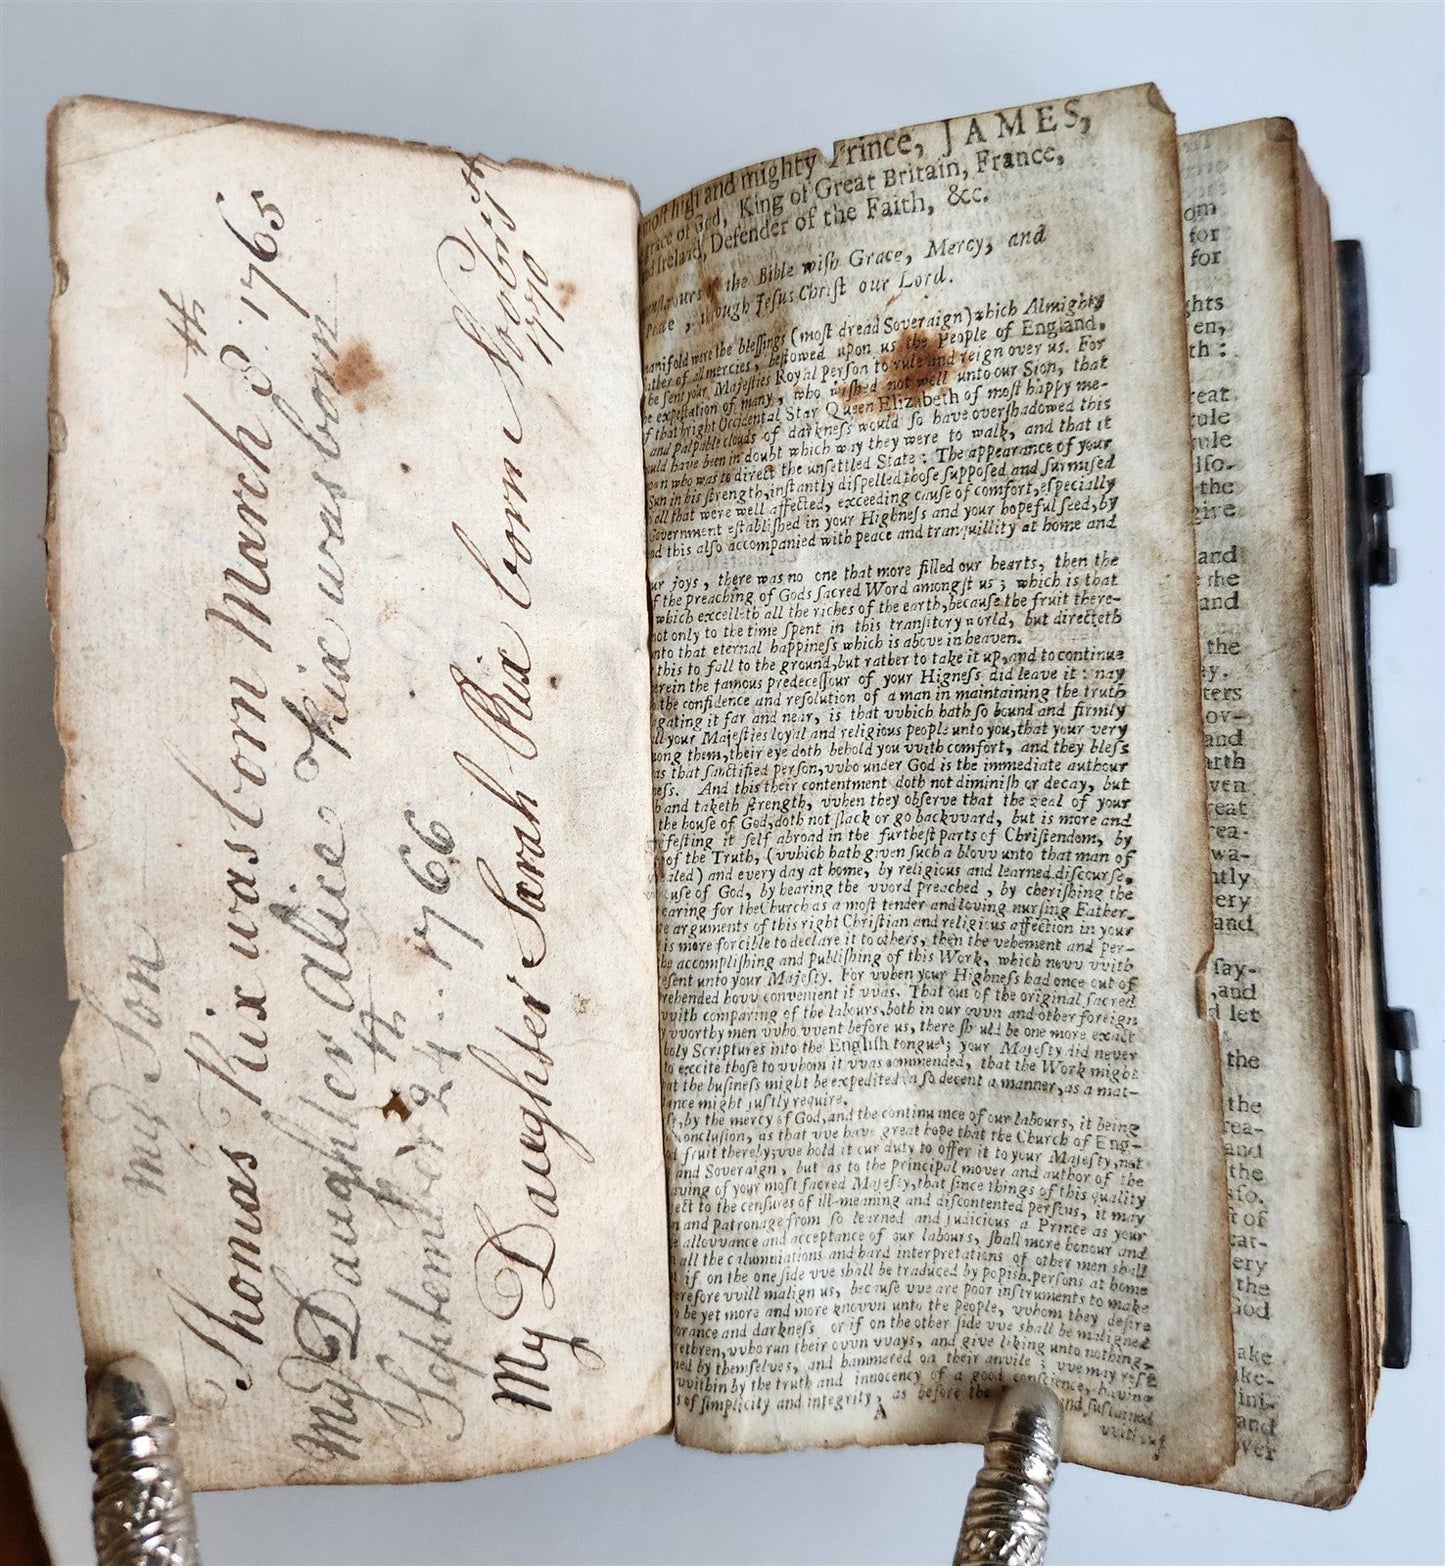 My Son
Thomas Rix was born March 5th 1765
My Daughter Alice Rix was born
September 24th.. 1766
My Daughter Sarah Rix born
1770
high and mighty Prince, JAMES,
King of Great Britain, France,
Ireland, Defender of the Faith, &c.
the Bible wish Grace, Mercy, and
Peace, through Jesus Chriſt our Lord.
manifold were the bleſſings (moſt dread Soveraign) which Almighty
of all mercies, beſtowed upon us the People of England,
he ſent your Majeſties Royal Perſon to rule and reign over us. For
expectation of many, who wiſhed not well unto our Sion, that
of that bright Occidental Star Queen Elizabeth of moſt happy me-
and palpable clouds of darkneſs would ſo have overſhadowed this
have been in doubt which way they were to walk, and that it
who was to direct the unſettled State: The appearance of your
Sun in his ſtrength, inſtantly diſpelled thoſe ſuppoſed and ſurmiſed
all that were well affected, exceeding cauſe of comfort, eſpecially
Government eſtabliſhed in your Highneſs and your hopeful ſeed, by
this alſo accompanied with peace and tranquillity at home and
joys, there was no one that more filled our hearts, then the
the preaching of Gods ſacred Word amongſt us; which is that
which excelleth all the riches of the earth, becauſe the fruit there-
not only to the time ſpent in this tranſitory world, but directeth
that eternal happineſs which is above in heaven.
this to fall to the ground, but rather to take it up, and to continue
the famous Predeceſſour of your Higneſs did leave it: nay
the confidence and reſolution of a man in maintaining the truth
it far and near, is that vvhich hath ſo bound and firmly
your Majeſties loyal and religious people unto you, that your very
them, their eye doth behold you vvith comfort, and they bleſs
as that ſanctified perſon, vvho under God is the immediate authour
And this their contentment doth not diminiſh or decay, but
and taketh ſtrength, vvhen they obſerve that the zeal of your
the houſe of God, doth not ſlack or go backvvard, but is more and
it ſelf abroad in the furtheſt parts of Chriſtendom, by
of the Truth, (vvhich hath given ſuch a blovv unto that man of
and every day at home, by religious and learned diſcourſe,
of God, by hearing the vvord preached, by cheriſhing the
for the Church as a moſt tender and loving nurſing Father.
arguments of this right Chriſtian and religious affection in your
is more forcible to declare it to others, then the vehement and per-
accompliſhing and publiſhing of this Work, which novv vvith
unto your Majeſty. For vvhen your Highneſs had once out of
hovv convenient it vvas, That out of the original ſacred
vvith comparing of the labours, both in our ovvn and other foreign
vvorthy men vvho vvent before us, there ſhould be one more exact
holy Scriptures into the Engliſh tongue; your Majeſty did never
to excite thoſe to vvhom it vvas commended, that the Work might
the buſineſs might be expedited in ſo decent a manner, as a mat-
might juſtly require.
by the mercy of God, and the continuance of our labours, it being
concluſion, as that vve have great hope that the Church of Eng-
fruit thereby; vve hold it our duty to offer it to your Majeſty, not
and Soveraign, but as to the principal mover and author of the
of your moſt ſacred Majeſty, that ſince things of this quality
to the cenſures of ill-meaning and diſcontented perſons, it may
and Patronage from ſo learned and judicious a Prince as your
allovvance and acceptance of our labours, ſhall more honour and
all the calumniations and hard interpretations of other men ſhall
if on the one ſide vve ſhall be traduced by popiſh perſons at home
vvill malign us, becauſe vve are poor inſtruments to make
be yet more and more knovvn unto the people, vvhom they deſire
and darkneſs or if on the other ſide vve ſhall be maligned
vvho run their ovvn vvays, and give liking unto nothing,
by themſelves, and hammered on their anvile; vve may reſt
vvithin by the truth and innocency of a good conſcience, having
of ſimplicity and integrity, as before the and ſuſtained
A
vvithout
for
for
en,
the
and
the
and
the
and
let
the
the
and
the
of
the
God
and